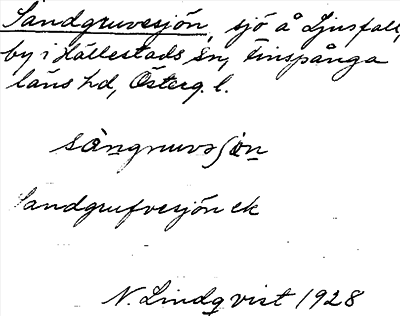 Sandgruvesjön, sjö å Ljusfall,
by i Hällestads sn, Finspånga
läns hd, Österg. l.
sàngruvəʃö̀n
Sandgrufvesjön ek
N. Lindqvist 1928